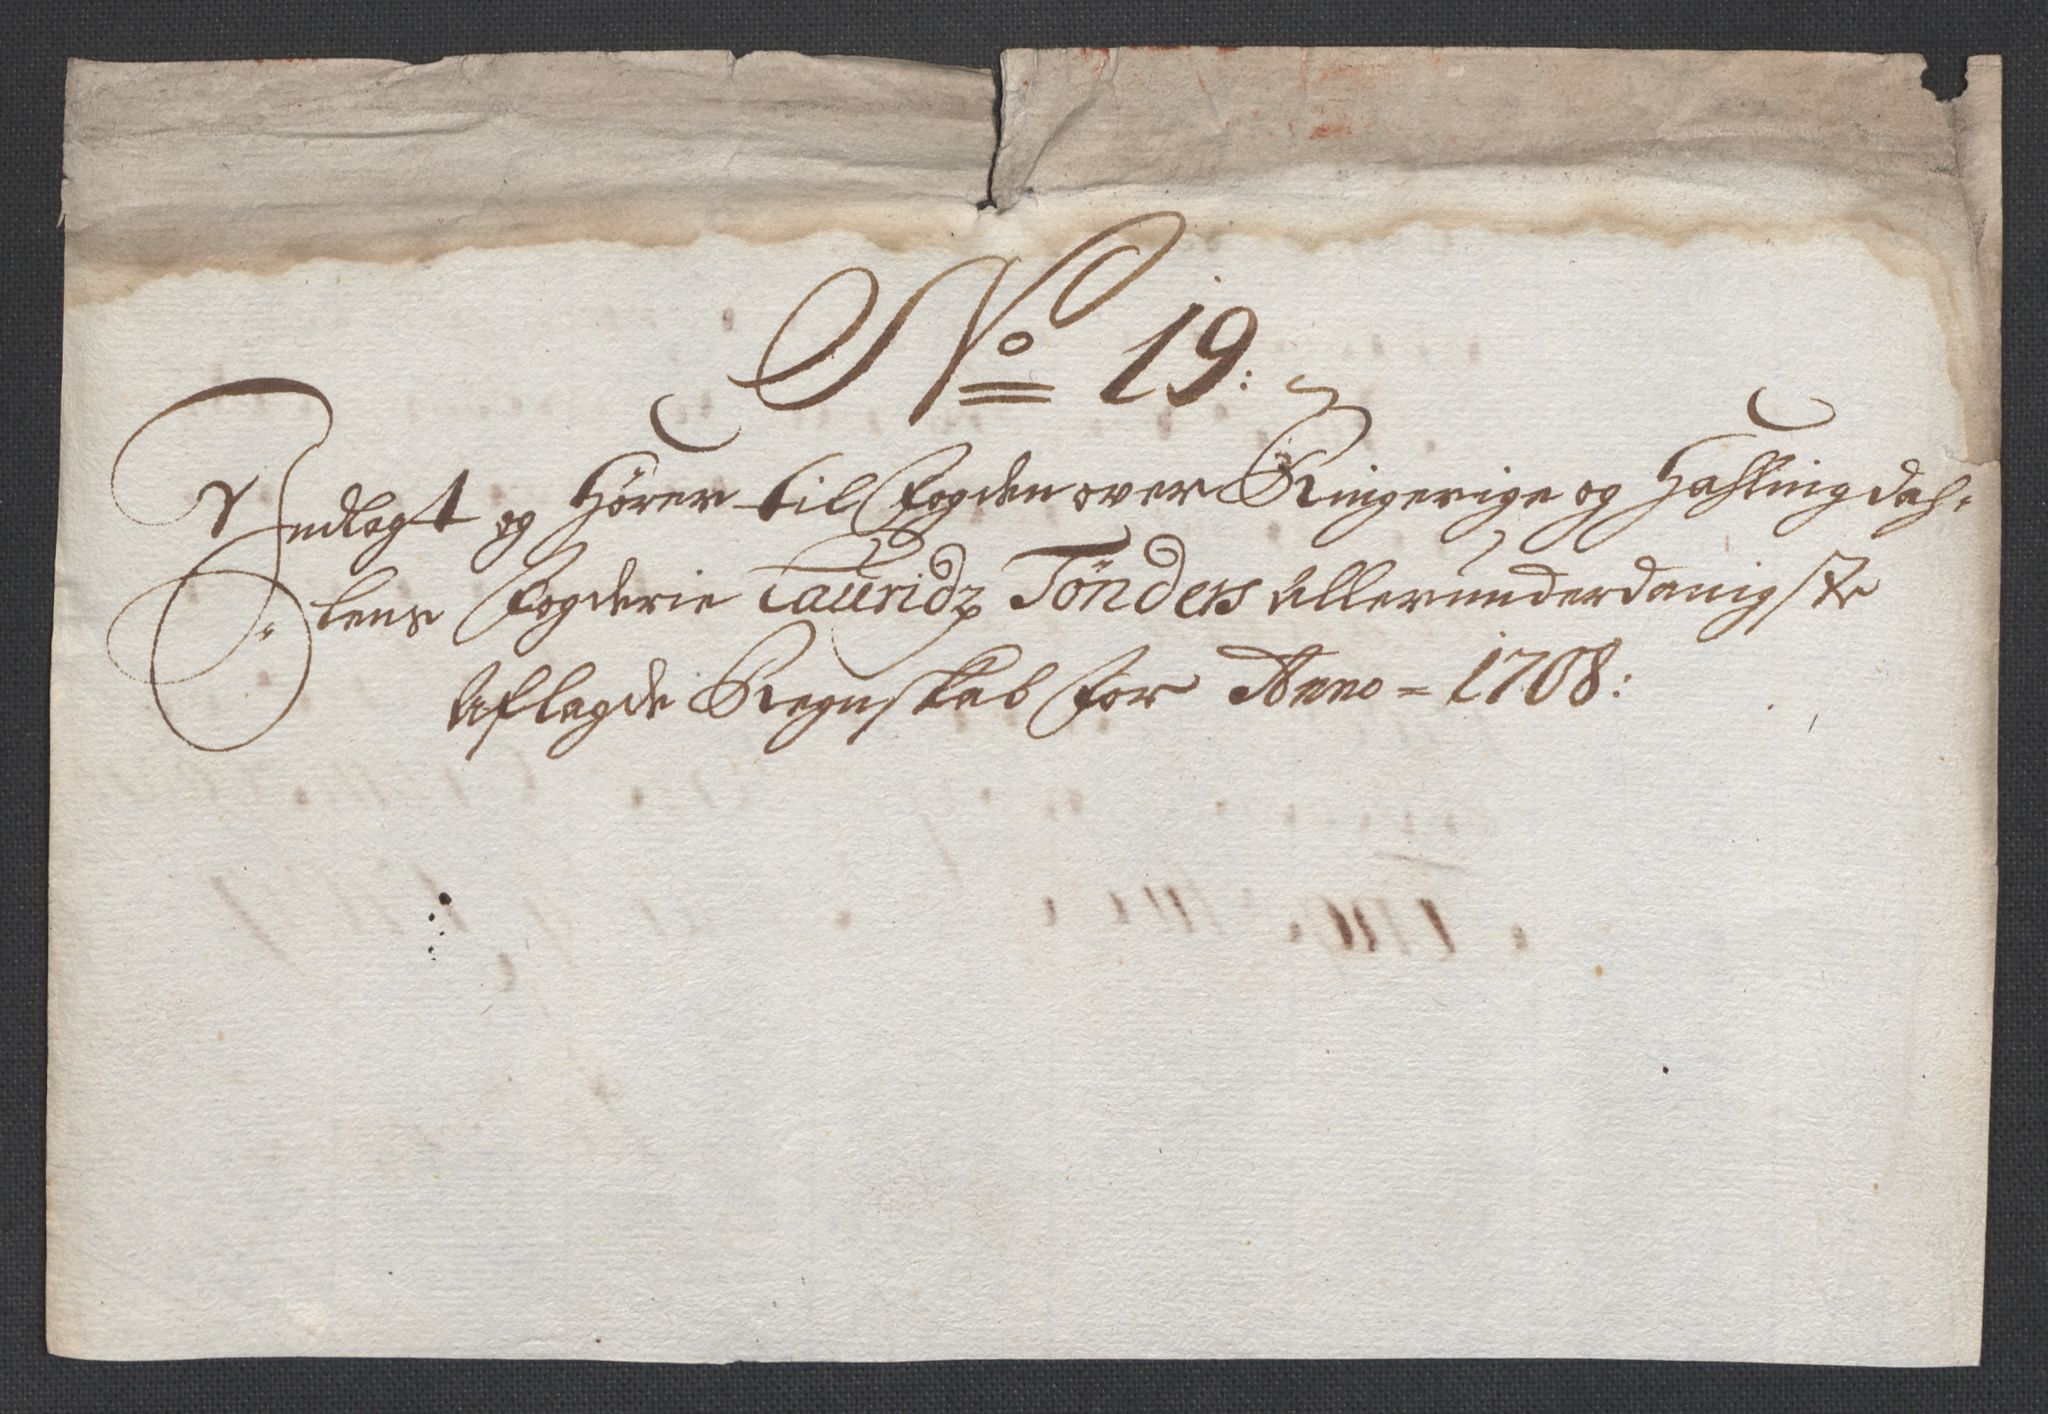 No 19:
Indlagt og Hörer til Fogden over Ringerige og Hallingdah-
-lens Fogderie Lauridz Tönders Allerunderdanigste
Aflagde Regnskab for Anno = 1708: